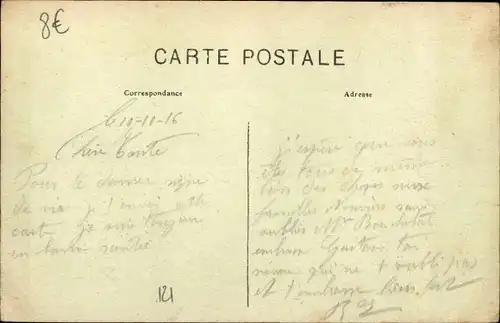 8€
CARTE POSTALE
Correspondance
Adresse
Le 10-11-16
Chère Tante
Pour te donner signe
de vie j'envoi cette
carte je suis toujours
en bonne santée
121
j'espère que vous
êtes tous de même
bon des choses aux
familles
oublier Mr
embrasse Gaston ton
neveu qui ne t'oubli pas
et t'embrasse bien fort